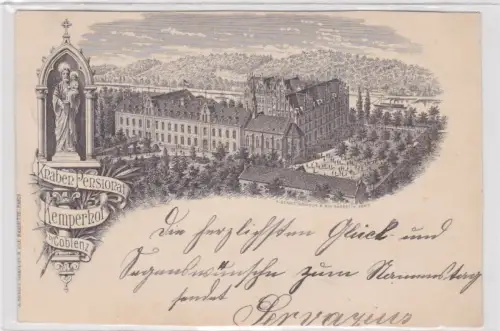 Knaben-Pensionat
Kemperhof
bei Coblenz
Die herzlichsten Glück- und
Segenswünsche zum Namenstag
sendet Servazius